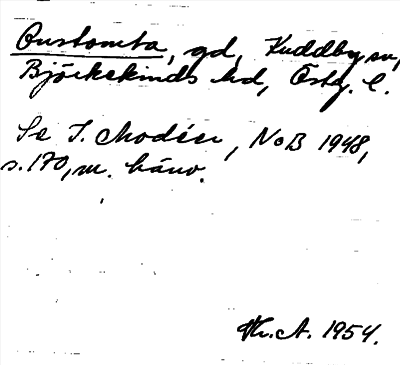 Onstomta, gd, Kuddby sn,
Björkekinds hd, Östg. l.
Se I. Modéer, NoB 1948,
s. 170, m. hänv.
Th. A. 1954.